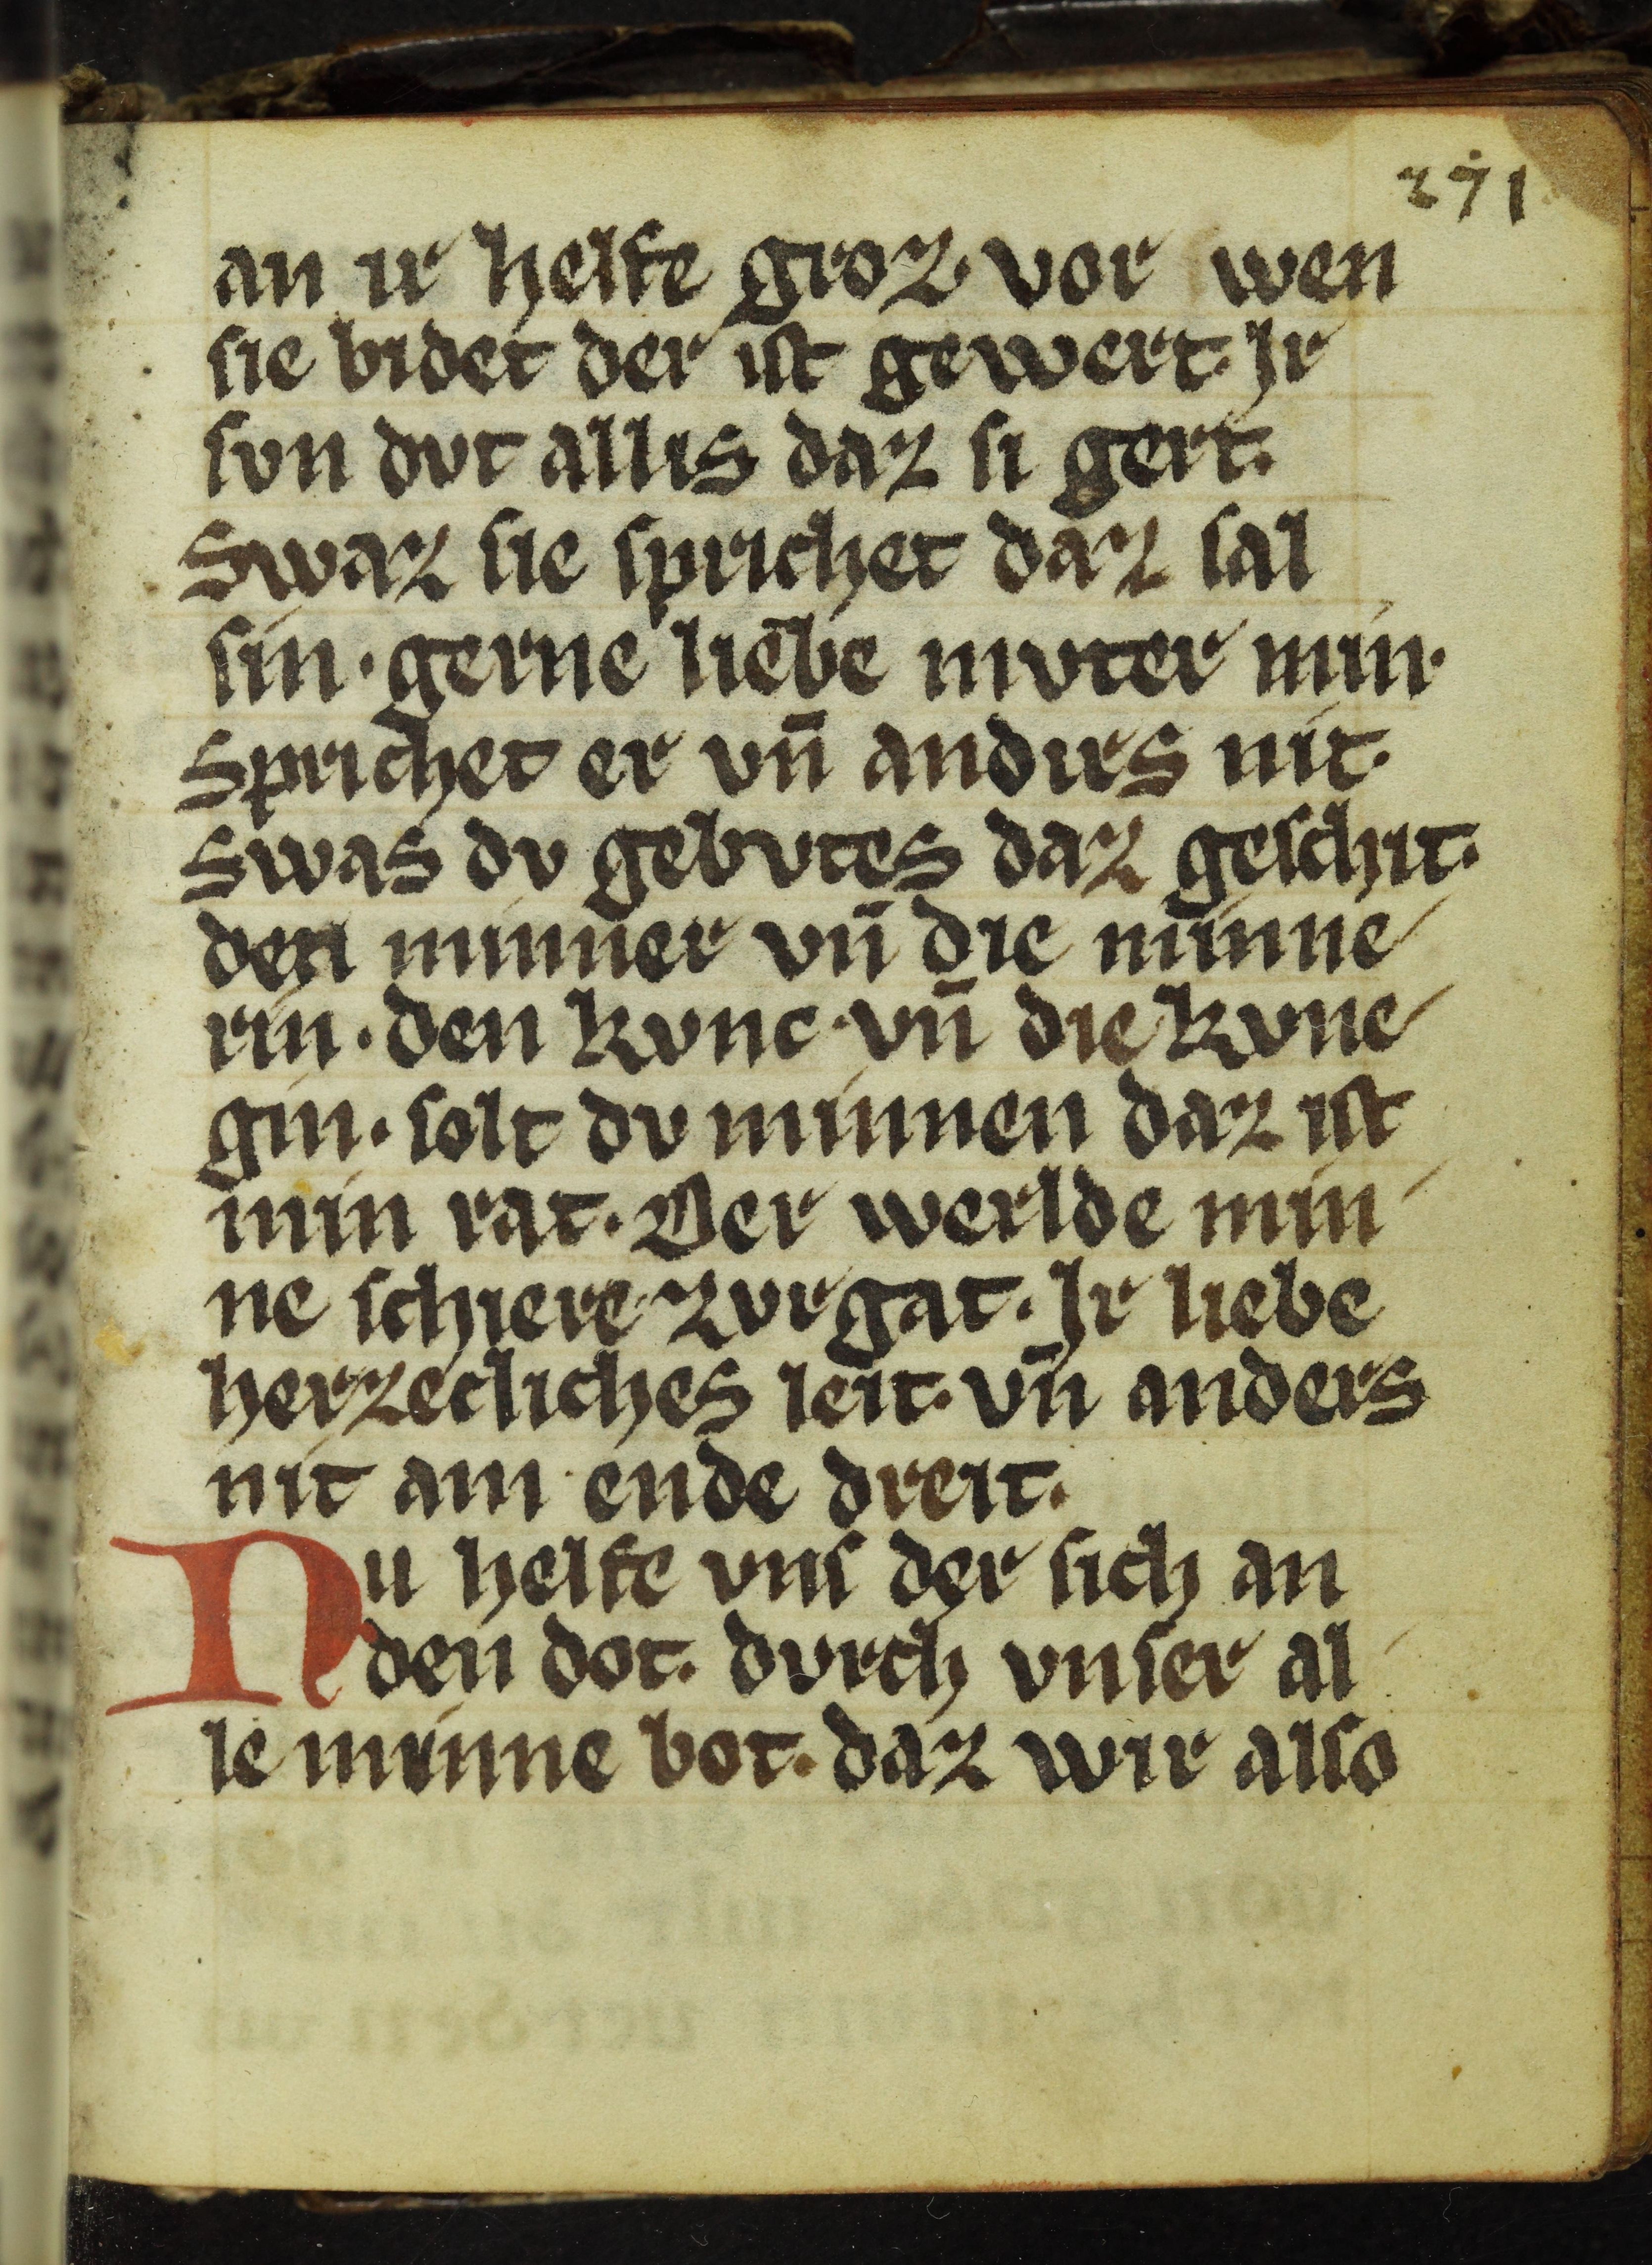 271
an ir helfe groz. vor wen
sie bidet der ist gewert. Ir
svn dvt allis daz si gert.
Swaz sie sprichet daz sal
sin. gerne liebe mvter min.
Sprichet er vn̄ andirs nit.
Swas dv gebvtes daz geschit.
den minner vn̄ die minne
rin. den kvnc vn̄ die kvne
gin. solt dv minnen daz ist
min rat. Der werlde min
ne schiere zvrgat. Ir liebe
herzecliches leit. vn̄ anders
nit am ende dreit.
Nu helfe vns der sich an
den dot. dvrch vnser al
le minne bot. daz wir also